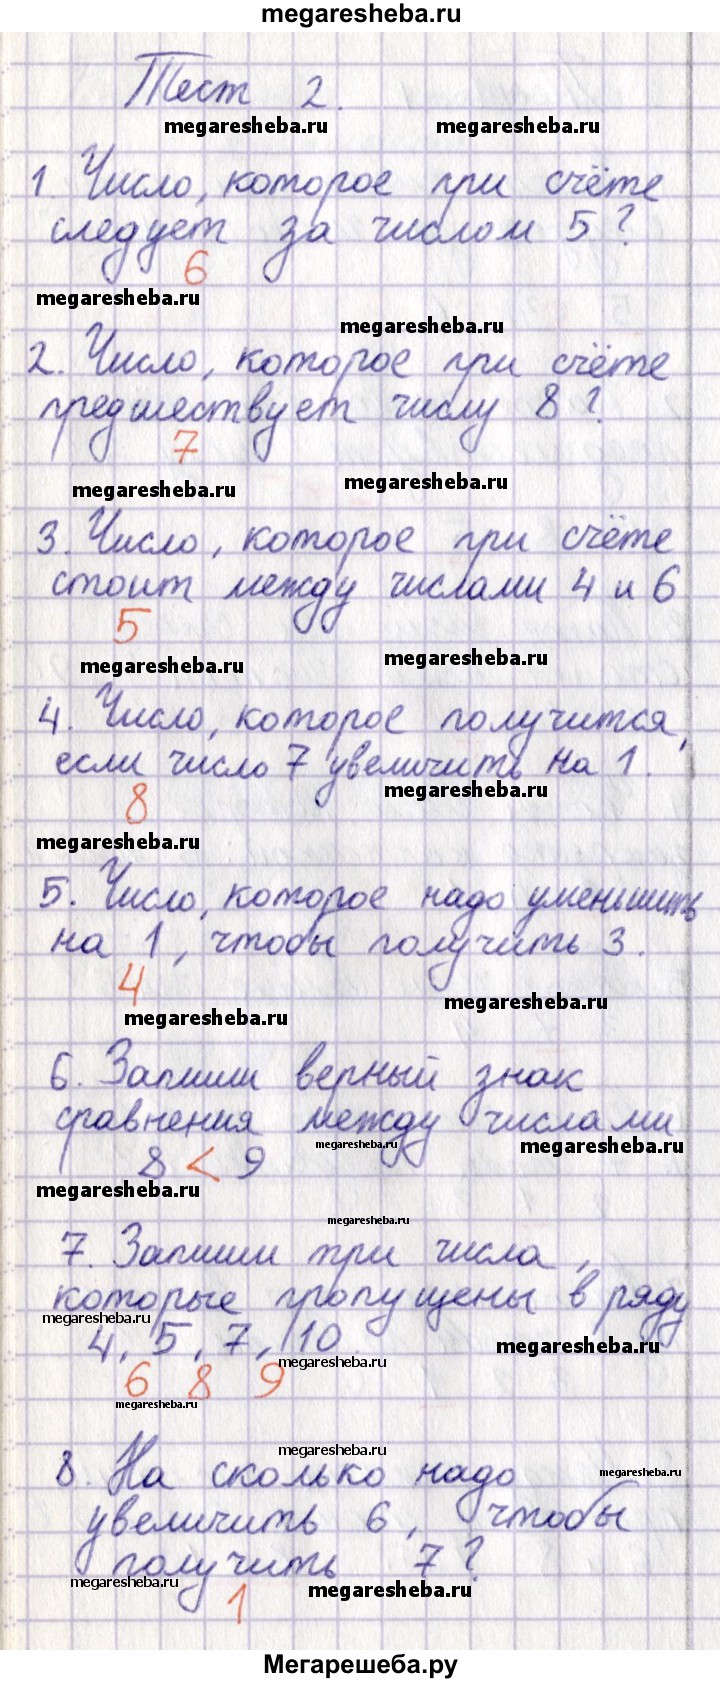 megaresheba.ru
Тест 2.
megaresheba.ru megaresheba.ru
1. Число, которое при счёте
следует за числом 5?
6
megaresheba.ru
megaresheba.ru
2. Число, которое при счёте
предшествует числу 8?
7
megaresheba.ru
megaresheba.ru
3. Число, которое при счёте
стоит между числами 4 и 6
5
megaresheba.ru
megaresheba.ru
4. Число, которое получится,
если число 7 увеличить на 1.
megaresheba.ru
8
megaresheba.ru
5. Число, которое надо уменьшить
на 1, чтобы получить 3.
4
megaresheba.ru
megaresheba.ru
6. Запиши верный знак
сравнения между числами
megaresheba.ru megaresheba.ru
8 < 9
megaresheba.ru
megaresheba.ru
7. Запиши три числа,
которые пропущены в ряду
megaresheba.ru
4, 5, 7, 10.
megaresheba.ru
megaresheba.ru
6 8 9
megaresheba.ru
megaresheba.ru
8. На сколько надо
megaresheba.ru
увеличить 6, чтобы
получить 7?
megaresheba.ru
megaresheba.ru
1
Мегарешеба.ру